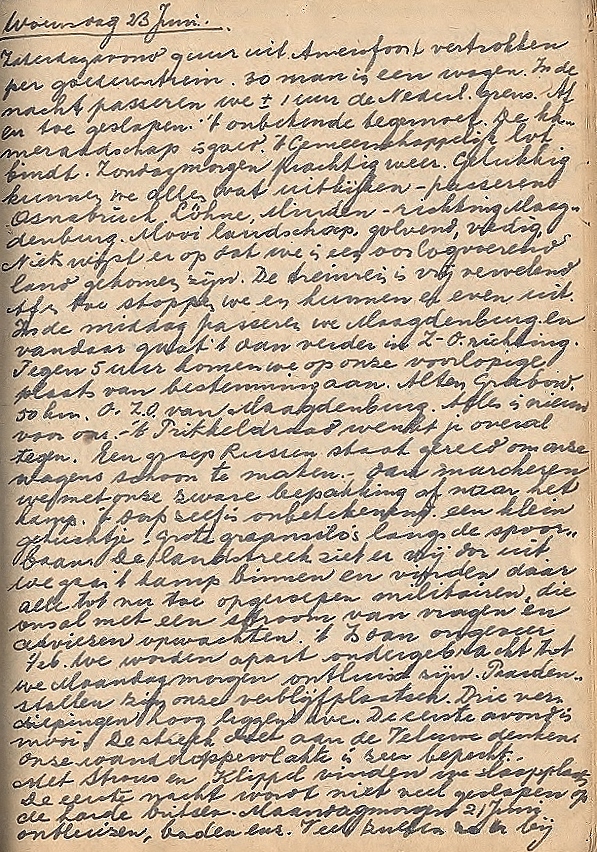 Woensdag 23 Juni.
Zaterdagavond 9 uur uit Amersfoort vertrokken
per goederentrein. 30 man in een wagen. In de
nacht passeren we ± 1 uur de Nederl. grens. Af
en toe geslapen. 't onbekende tegemoet. De ka-
meraadschap is goed. 't Gemeenschappelijk lot
bindt. Zondagmorgen prachtig weer. Gelukkig
kunnen we alles wat uitkijken - passeren
Osnabrück, Löhne, Minden - richting Maag-
denburg. Mooi landschap, golvend,
Niets wijst er op dat we in een oorlogvoerend
land gekomen zijn. De treinreis is vrij vervelend
Af en toe stoppen we en kunnen er even uit.
In de middag passeren we Maagdenburg en
vandaar gaat 't dan verder in Z-O. richting.
Tegen 5 uur komen we op onze voorlopige
plaats van bestemming aan. Alten Grabow.
50 km. O.Z.O. van Maagdenburg. Alles is nieuw
voor ons. 't Prikkeldraad wenkt je overal
tegen. Een groep Russen staat gereed om onze
wagens schoon te maken. Dan marcheren
we met onze zware bepakking af naar het
kamp. 't Dorp zelf is onbetekenend. een klein
gehuchtje. grote graansilo's langs de spoor-
baan. De landstreek ziet er vrij dor uit
we gaan 't kamp binnen en vinden daar
alle tot nu toe opgeroepen militairen, die
ons al met een stroom van vragen en
adviezen opwachten. 't Is dan ongeveer
7 We worden apart ondergebracht tot
we Maandagmorgen ontluisd zijn. Paarden-
stallen zijn onze verblijfplaatsen. Drie ver-
diepingen hoog liggen we. De eerste avond is
mooi. De streek doet aan de Veluwe denken.
Onze wandeloppervlakte is zeer beperkt.
Met Straus en Klippel vinden we slaapplaats
De eerste nacht wordt niet veel geslapen op
de harde britsen. Maandagmorgen 21 Juni
ontluizen, baden enz. Veel bij